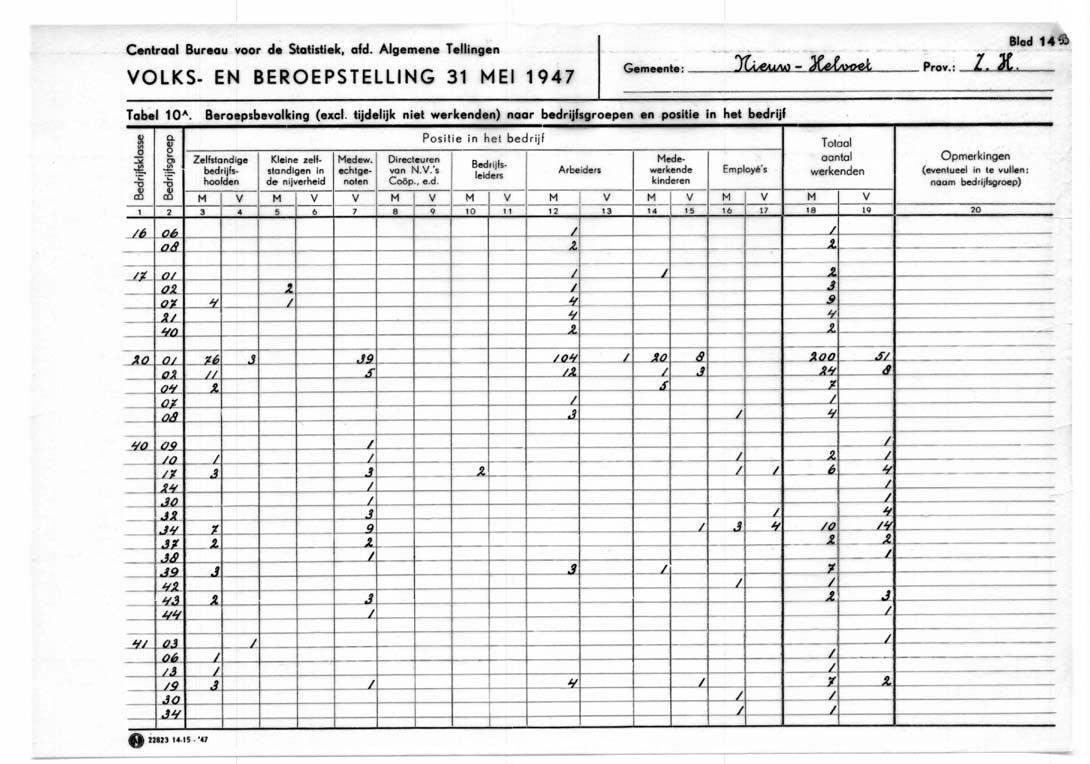 Centraal Bureau voor de Statistiek, afd. Algemene Tellingen
VOLKS- EN BEROEPSTELLING 31 MEI 1947
Gemeente: Nieuw-Helvoet Prov.: Z. H.
Blad 14
Tabel 10A. Beroepsbevolking (excl. tijdelijk niet werkenden) naar bedrijfsgroepen en positie in het bedrijf
Bedrijfsklasse
Bedrijfsgroep
Positie in het bedrijf
Zelfstandige bedrijfs-hoofden
Kleine zelf-standigen in de nijverheid
Medew. echtge-noten
Directeuren van N.V.'s Coöp., e.d.
Bedrijfs-leiders
Arbeiders
Mede-werkende kinderen
Employé's
Totaal aantal werkenden
Opmerkingen (eventueel in te vullen: naam bedrijfsgroep)
M V M V V M V M V M V M V M V M V
1 2 3 4 5 6 7 8 9 10 11 12 13 14 15 16 17 18 19 20
16 06 1 1
08 2 2
17 01 1 1 2
02 2 1 3
07 4 1 4 9
21 4 4
40 2 2
20 01 76 3 39 104 1 20 8 200 51
02 11 5 12 1 3 24 8
04 2 5 7
07 1 1
08 3 1 4
40 09 1 1
10 1 1 1 2 1
17 3 3 2 1 1 6 4
24 1 1
30 1 1
32 3 1 4
34 7 9 1 3 4 10 14
37 2 2 2 2
38 1 1
39 3 3 1 7
42 1 1
43 2 3 2 3
44 1 1
41 03 1 1
06 1 1
13 1 1
19 3 1 4 1 7 2
30 1 1
34 1 1
22823 14-15 - '47